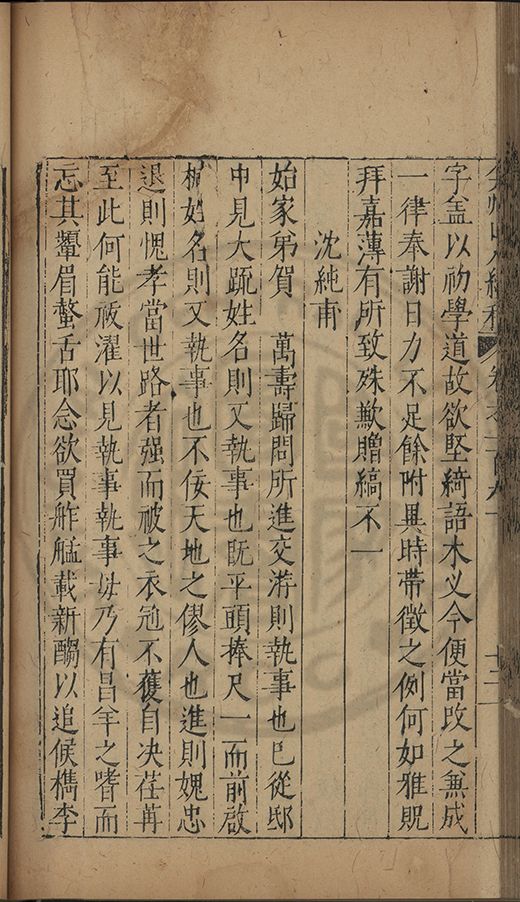 弇州山人續稿 卷之一百八十 十二
字盖以初學道故欲堅綺語木义今便當改之無成
一律奉謝日力不足餘附異時帶徵之例何如雅貺
拜嘉薄有所致殊歉贈縞不一
沈純甫
始家弟賀 萬壽歸問所進交游則執事也已從邸
中見大疏姓名則又執事也既平頭捧尺一而前啟
械姓名則又執事也不佞天地之僇人也進則媿忠
退則愧孝當世路者强而祓之衣冠不獲自决荏苒
至此何能祓濯以見執事執事毋乃有昌羊之嗜而
忘其顰眉螫舌耶念欲買舴艋載新醪以追候檇李